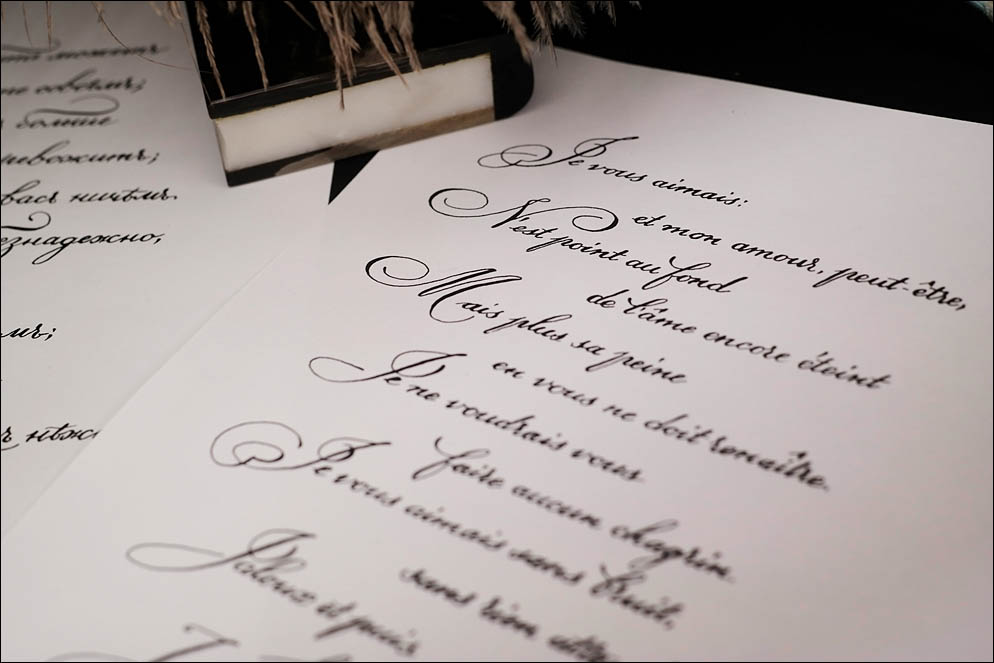 можетъ
не совсѣмъ;
больше
васъ ничѣмъ.
езнадежно,
мъ;
Je vous aimais:
et mon amour, peut-être,
N'est point au fond
de l'âme encore éteint
Mais plus sa peine
en vous ne doit renaître.
Je ne voudrais vous
faire aucun chagrin.
Je vous aimais sans bruit,
sans rien atte
Jaloux et puis